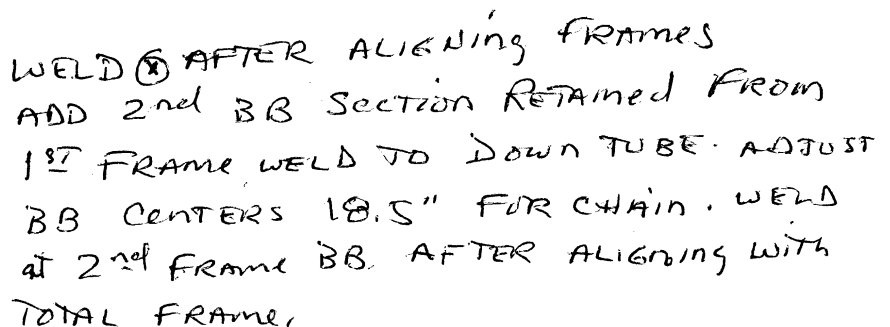 WELD ⓧ AFTER ALIGNing FRAMES
ADD 2nd BB SECTION RETAINED FROM
1ST FRAME WELD TO DOWN TUBE. ADJUST
BB CENTERS 18.5" FOR CHAIN. WELD
at 2nd FRAME BB. AFTER ALIGNING WITH
TOTAL FRAME.